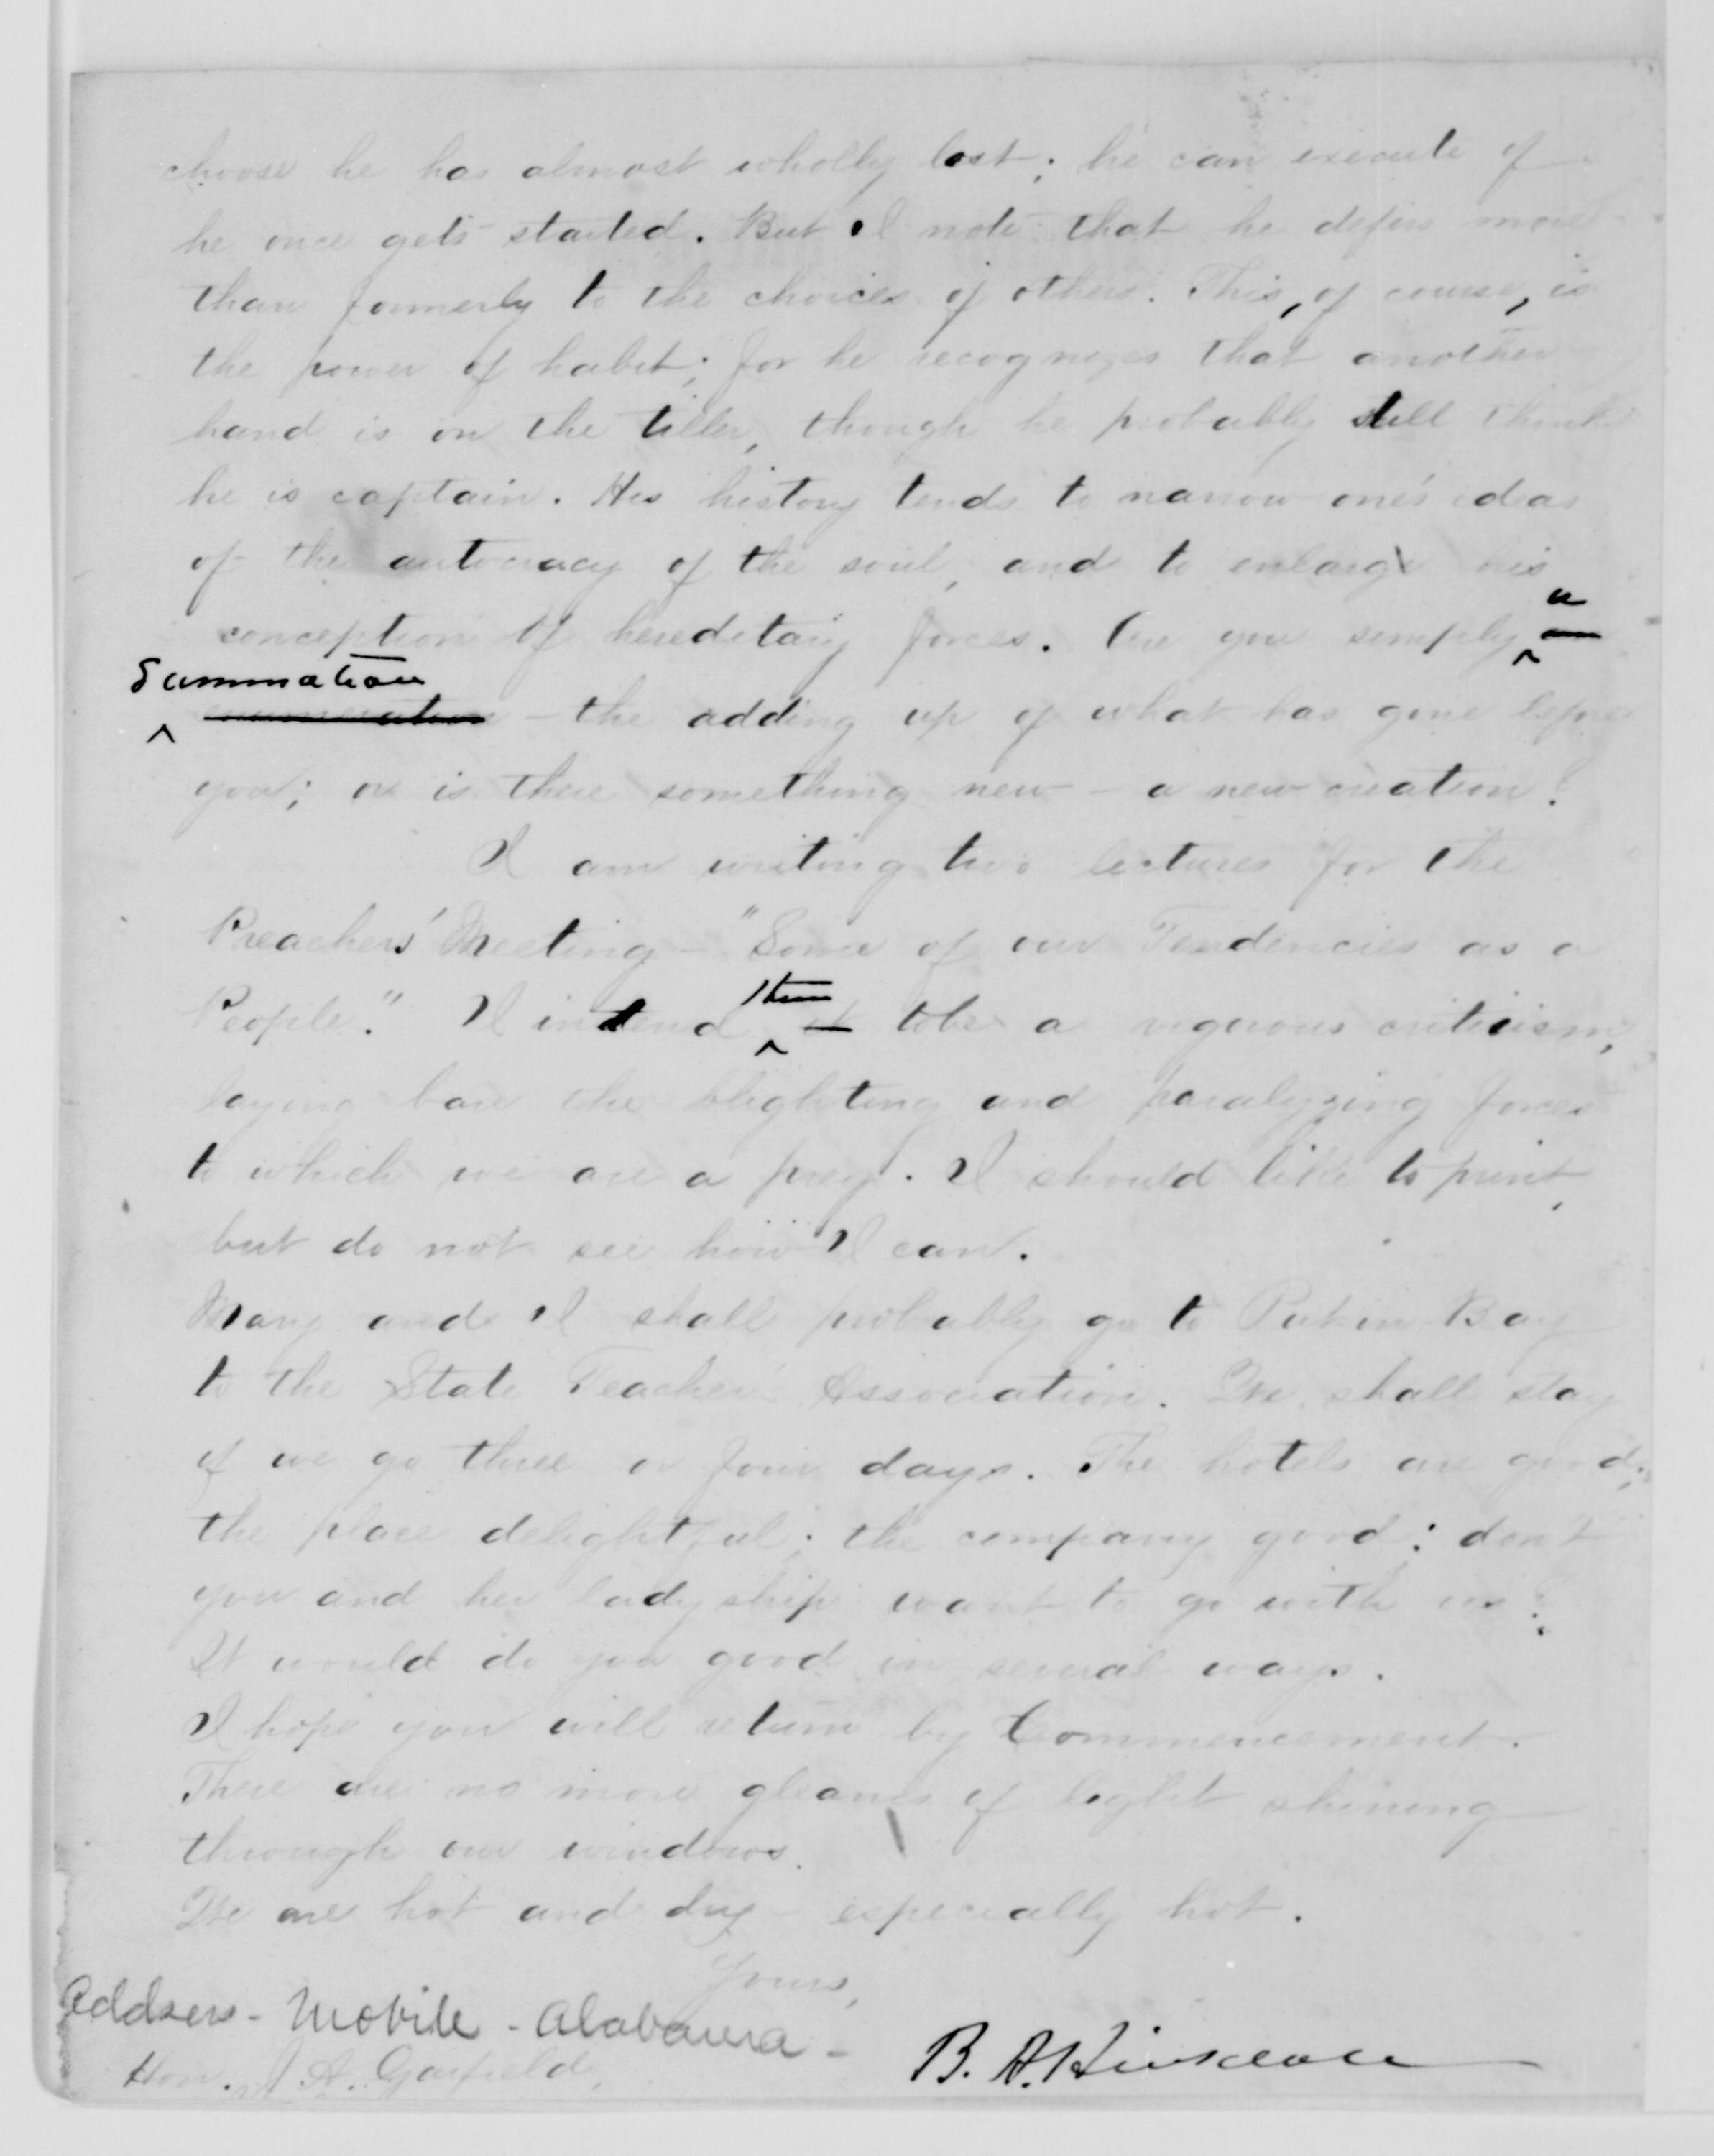 choose he has almost wholly lost; he can execute if
he once gets started. But I note that he defers more
than formerly to the choices of others. This, of course, is
the power of habit; for he recognizes that another
hand is on the tiller, though he probably still thinks
he is captain. His history tends to narrow one's ideas
of the autocracy of the soul, and to enlarge his
conception of hereditary forces. Are you simply a
Summation
enumeration - the adding up of what has gone before
you; or is there something new - a new creation?
I am writing two lectures for the
Preachers' Meeting - "Some of our Tendencies as a
People." I intend them it to be a vigorous criticism,
laying bare the blighting and paralyzing forces
to which we are a prey. I should like to print,
but do not see how I can.
Mary and I shall probably go to Put in Bay
to the State Teachers' Association. We shall stay
if we go three or four days. The hotels are good;
the place delightful; the company good: don't
you and her ladyship want to go with us?
It would do you good in several ways.
I hope you will return by Commencement.
There are no more gleams of light shining
through our windows.
We are hot and dry - especially hot.
Yours,
Address - Mobile - Alabama -
B. A. Hinsdale
Hon. J. A. Garfield,